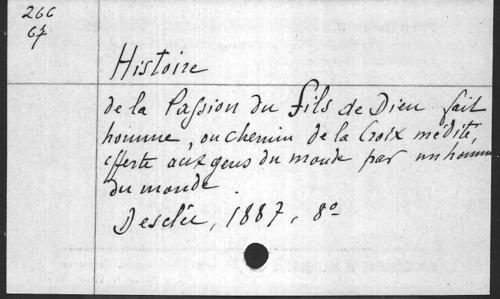 266
67
Histoire
de la Passion du fils de Dieu fait
homme, ou chemin de la Croix médité,
offerte aux gens du monde par un homme
du monde.
Desclée, 1887, 8º